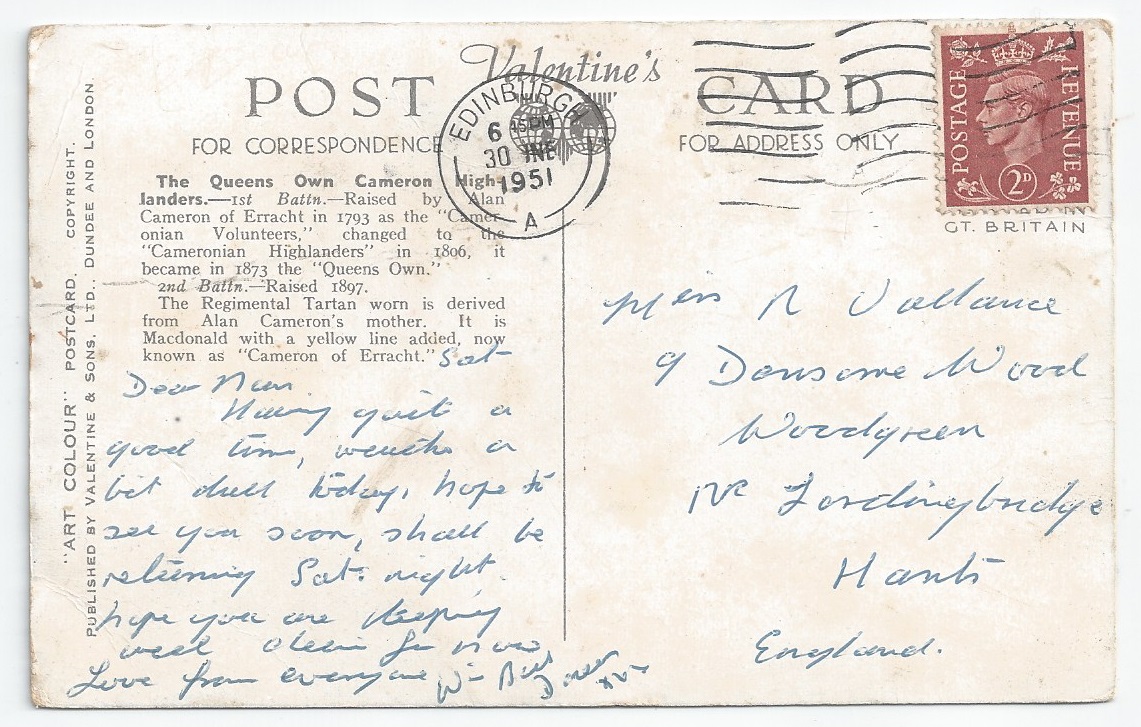 Valentine's
POST CARD
FOR CORRESPONDENCE
FOR ADDRESS ONLY
EDINBURGH
6 15 PM
30 JNE
1951
A
POSTAGE REVENUE
2D
GT. BRITAIN
The Queens Own Cameron High-
landers.—1st Battn.—Raised by Alan
Cameron of Erracht in 1793 as the "Camer-
onian Volunteers," changed to the
"Cameronian Highlanders" in 1806, it
became in 1873 the "Queens Own."
2nd Battn.—Raised 1897.
The Regimental Tartan worn is derived
from Alan Cameron's mother. It is
Macdonald with a yellow line added, now
known as "Cameron of Erracht."
Sat
Dear Nan
Having quit a
good time, weather a
bit dull today, hope to
see you soon, shall be
returning Sat. night
hope you are keeping
well cheerio for now
Love from everyone
"ART COLOUR" POSTCARD. COPYRIGHT.
PUBLISHED BY VALENTINE & SONS, LTD., DUNDEE AND LONDON
R Vallance
9 Wood
Woodgreen
Nr Fordingbridge
Hants
England.